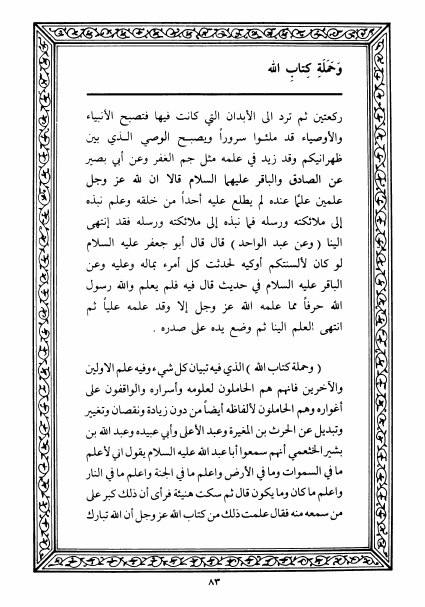 وَحَمَلَةِ كِتابِ الله
ركعتين ثم ترد الى الأبدان التي كانت فيها فتصبح الأنبياء
والأوصياء قد ملئوا سروراً ويصبح الوصي الذي بين
ظهرانيكم وقد زيد في علمه مثل جم الغفر وعن أبي بصير
عن الصادق والباقر عليهما السلام قالا ان لله عز وجل
علمين علماً عنده لم يطلع عليه أحداً من خلقه وعلم نبذه
إلى ملائكته ورسله فما نبذه إلى ملائكته ورسله فقد إنتهى
الينا ( وعن عبد الواحد ) قال قال أبو جعفر عليه السلام
لو كان لألسنتكم أوكيه لحدثت كل أمرء بماله وعليه وعن
الباقر عليه السلام في حديث قال فيه فلم يعلم والله رسول
الله حرفاً مما علمه الله عز وجل إلا وقد علمه علياً ثم
انتهى العلم الينا ثم وضع يده على صدره .
( وحملة كتاب الله ) الذي فيه تبيان كل شيء وفيه علم الاولين
والآخرين فانهم هم الحاملون لعلومه وأسراره والواقفون على
أغواره وهم الحاملون لألفاظه أيضاً من دون زيادة ونقصان وتغيير
وتبديل عن الحرث بن المغيرة وعبد الأعلى وأبي عبيده وعبد الله بن
بشير الخثعمي أنهم سمعوا أبا عبد الله عليه السلام يقول اني لأعلم
ما في السموات وما في الأرض واعلم ما في الجنة واعلم ما في النار
واعلم ما كان وما يكون قال ثم سكت هنيئة فرأى أن ذلك كبر على
من سمعه منه فقال علمت ذلك من كتاب الله عز وجل أن الله تبارك
٨٣